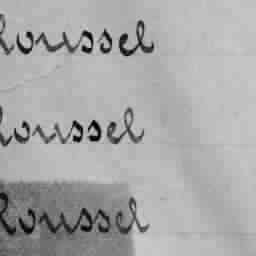 houssel
houssel
houssel